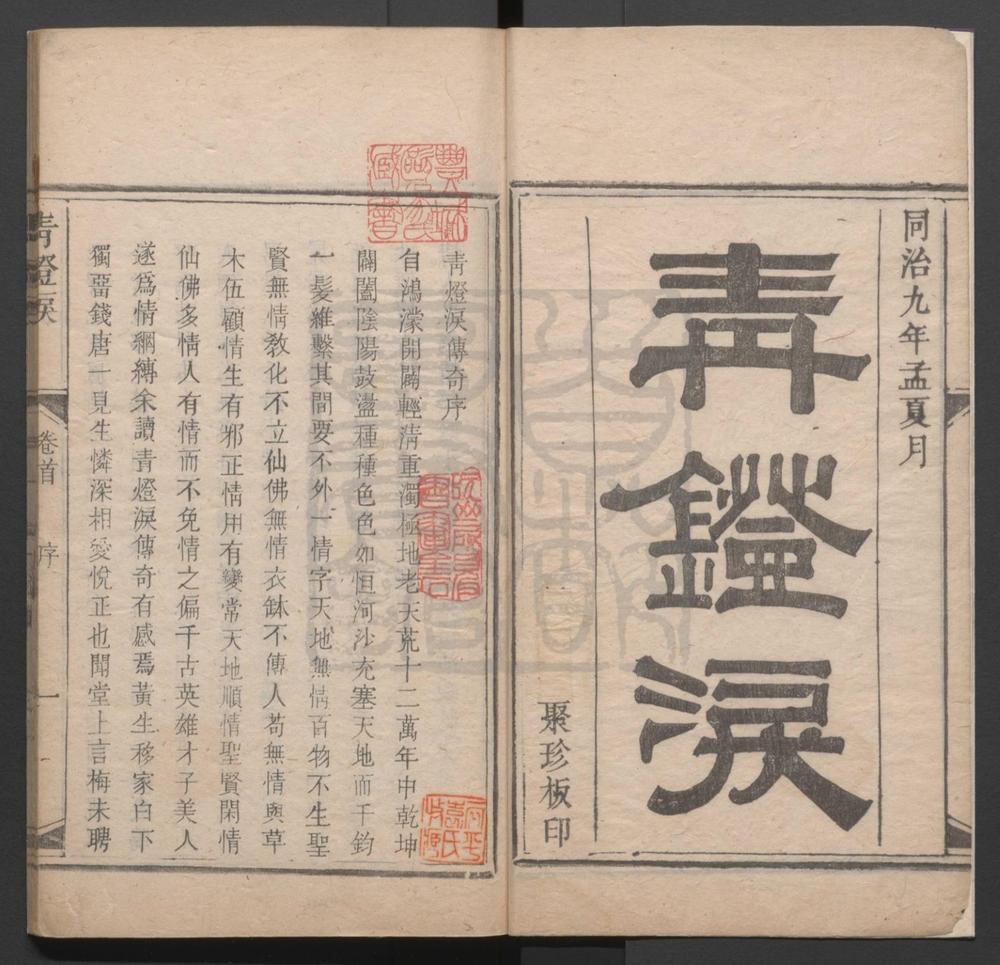 同治九年孟夏月
青鐙淚
聚珍板印
青燈淚傳奇序
自鴻濛開闢輕清重濁極地老天荒十二萬年中乾坤
闢闔陰陽鼓盪種種色色如恒河沙充塞天地而千鈞
一髮維繫其間要不外一情字天地無情百物不生聖
賢無情教化不立仙佛無情衣鉢不傳人苟無情與草
木伍顧情生有邪正情用有變常天地順情聖賢閑情
仙佛多情人有情而不免情之偏千古英雄才子美人
遂為情網縛余讀青燈淚傳奇有感焉黃生移家白下
獨畱錢唐一見生憐深相愛悅正也聞堂上言梅未聘
青燈淚
卷首
序
一